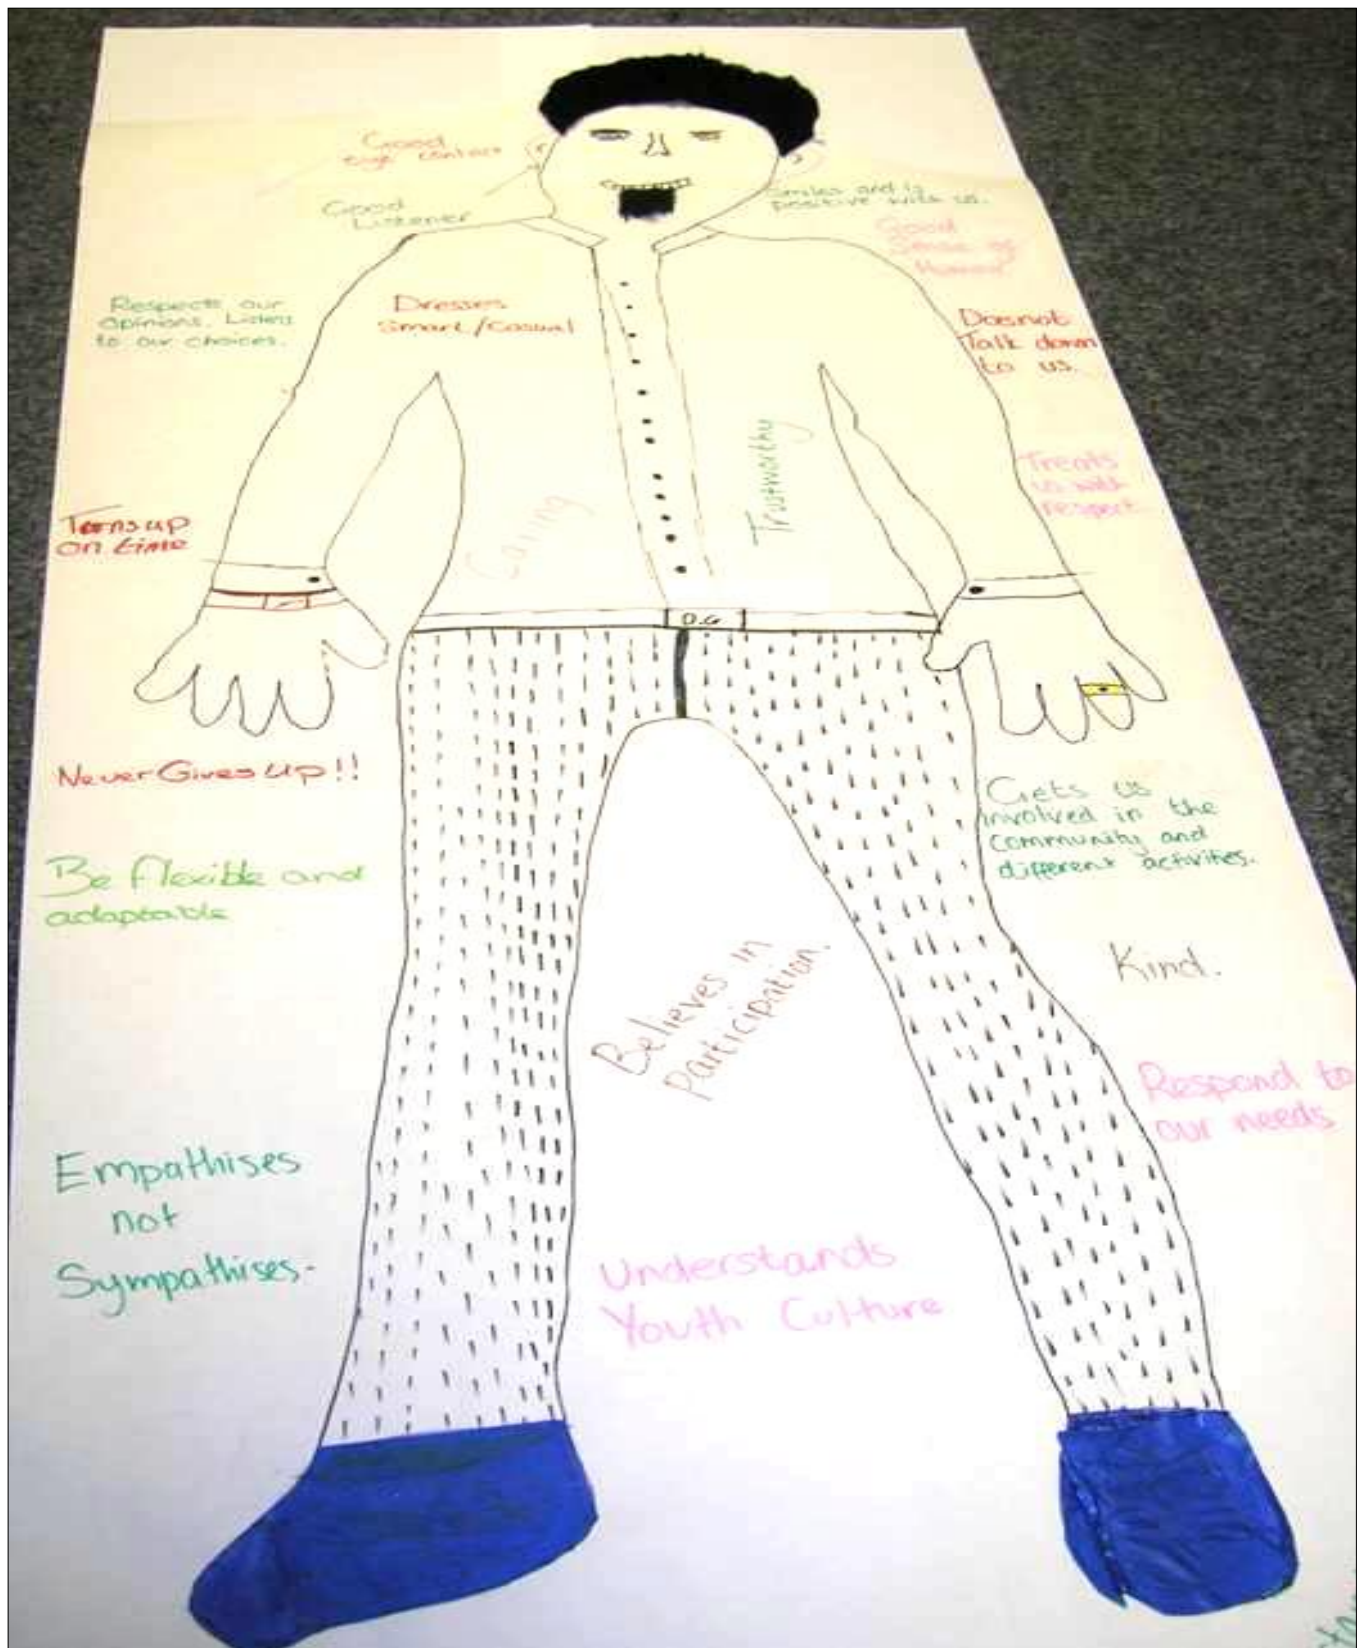 Good
eye contact
Good
Listener
Smiles and is
positive with us.
Good
Sense of
Humour
Respects our
opinions. Listens
to our choices.
Dresses
Smart/Casual
Does not
Talk down
to us.
Trustworthy
Caring
Treats
us with
respect
Turns up
on time
D.G
Never Gives up!!
Gets us
involved in the
community and
different activities.
Be flexible and
adaptable
Kind.
Believes in
participation.
Respond to
our needs
Empathises
not
Sympathises.
Understands
Youth Culture